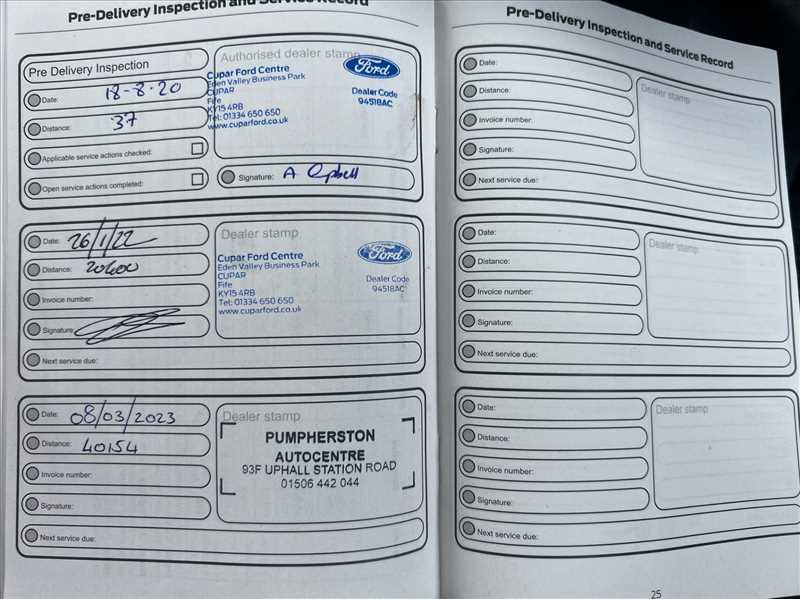 Pre-Delivery Inspection and Service Record
Pre Delivery Inspection
Date: 18-8-20
Distance: 37
Applicable service actions checked:
Open service actions completed:
Authorised dealer stamp
Cupar Ford Centre
Eden Valley Business Park
CUPAR
Fife
KY15 4RB
Tel: 01334 650 650
www.cuparford.co.uk
Ford
Dealer Code
94518AC
Signature: A
Date: 26/1/22
Distance: 20600
Invoice number:
Signature:
Next service due:
Dealer stamp
Cupar Ford Centre
Eden Valley Business Park
CUPAR
Fife
KY15 4RB
Tel: 01334 650 650
www.cuparford.co.uk
Ford
Dealer Code
94518AC
Date: 08/03/2023
Distance: 40154
Invoice number:
Signature:
Next service due:
Dealer stamp
PUMPHERSTON
AUTOCENTRE
93F UPHALL STATION ROAD
01506 442 044
Pre-Delivery Inspection and Service Record
Date:
Distance:
Invoice number:
Signature:
Next service due:
Dealer stamp
Date:
Distance:
Invoice number:
Signature:
Next service due:
Dealer stamp
Date:
Distance:
Invoice number:
Signature:
Next service due:
Dealer stamp
25